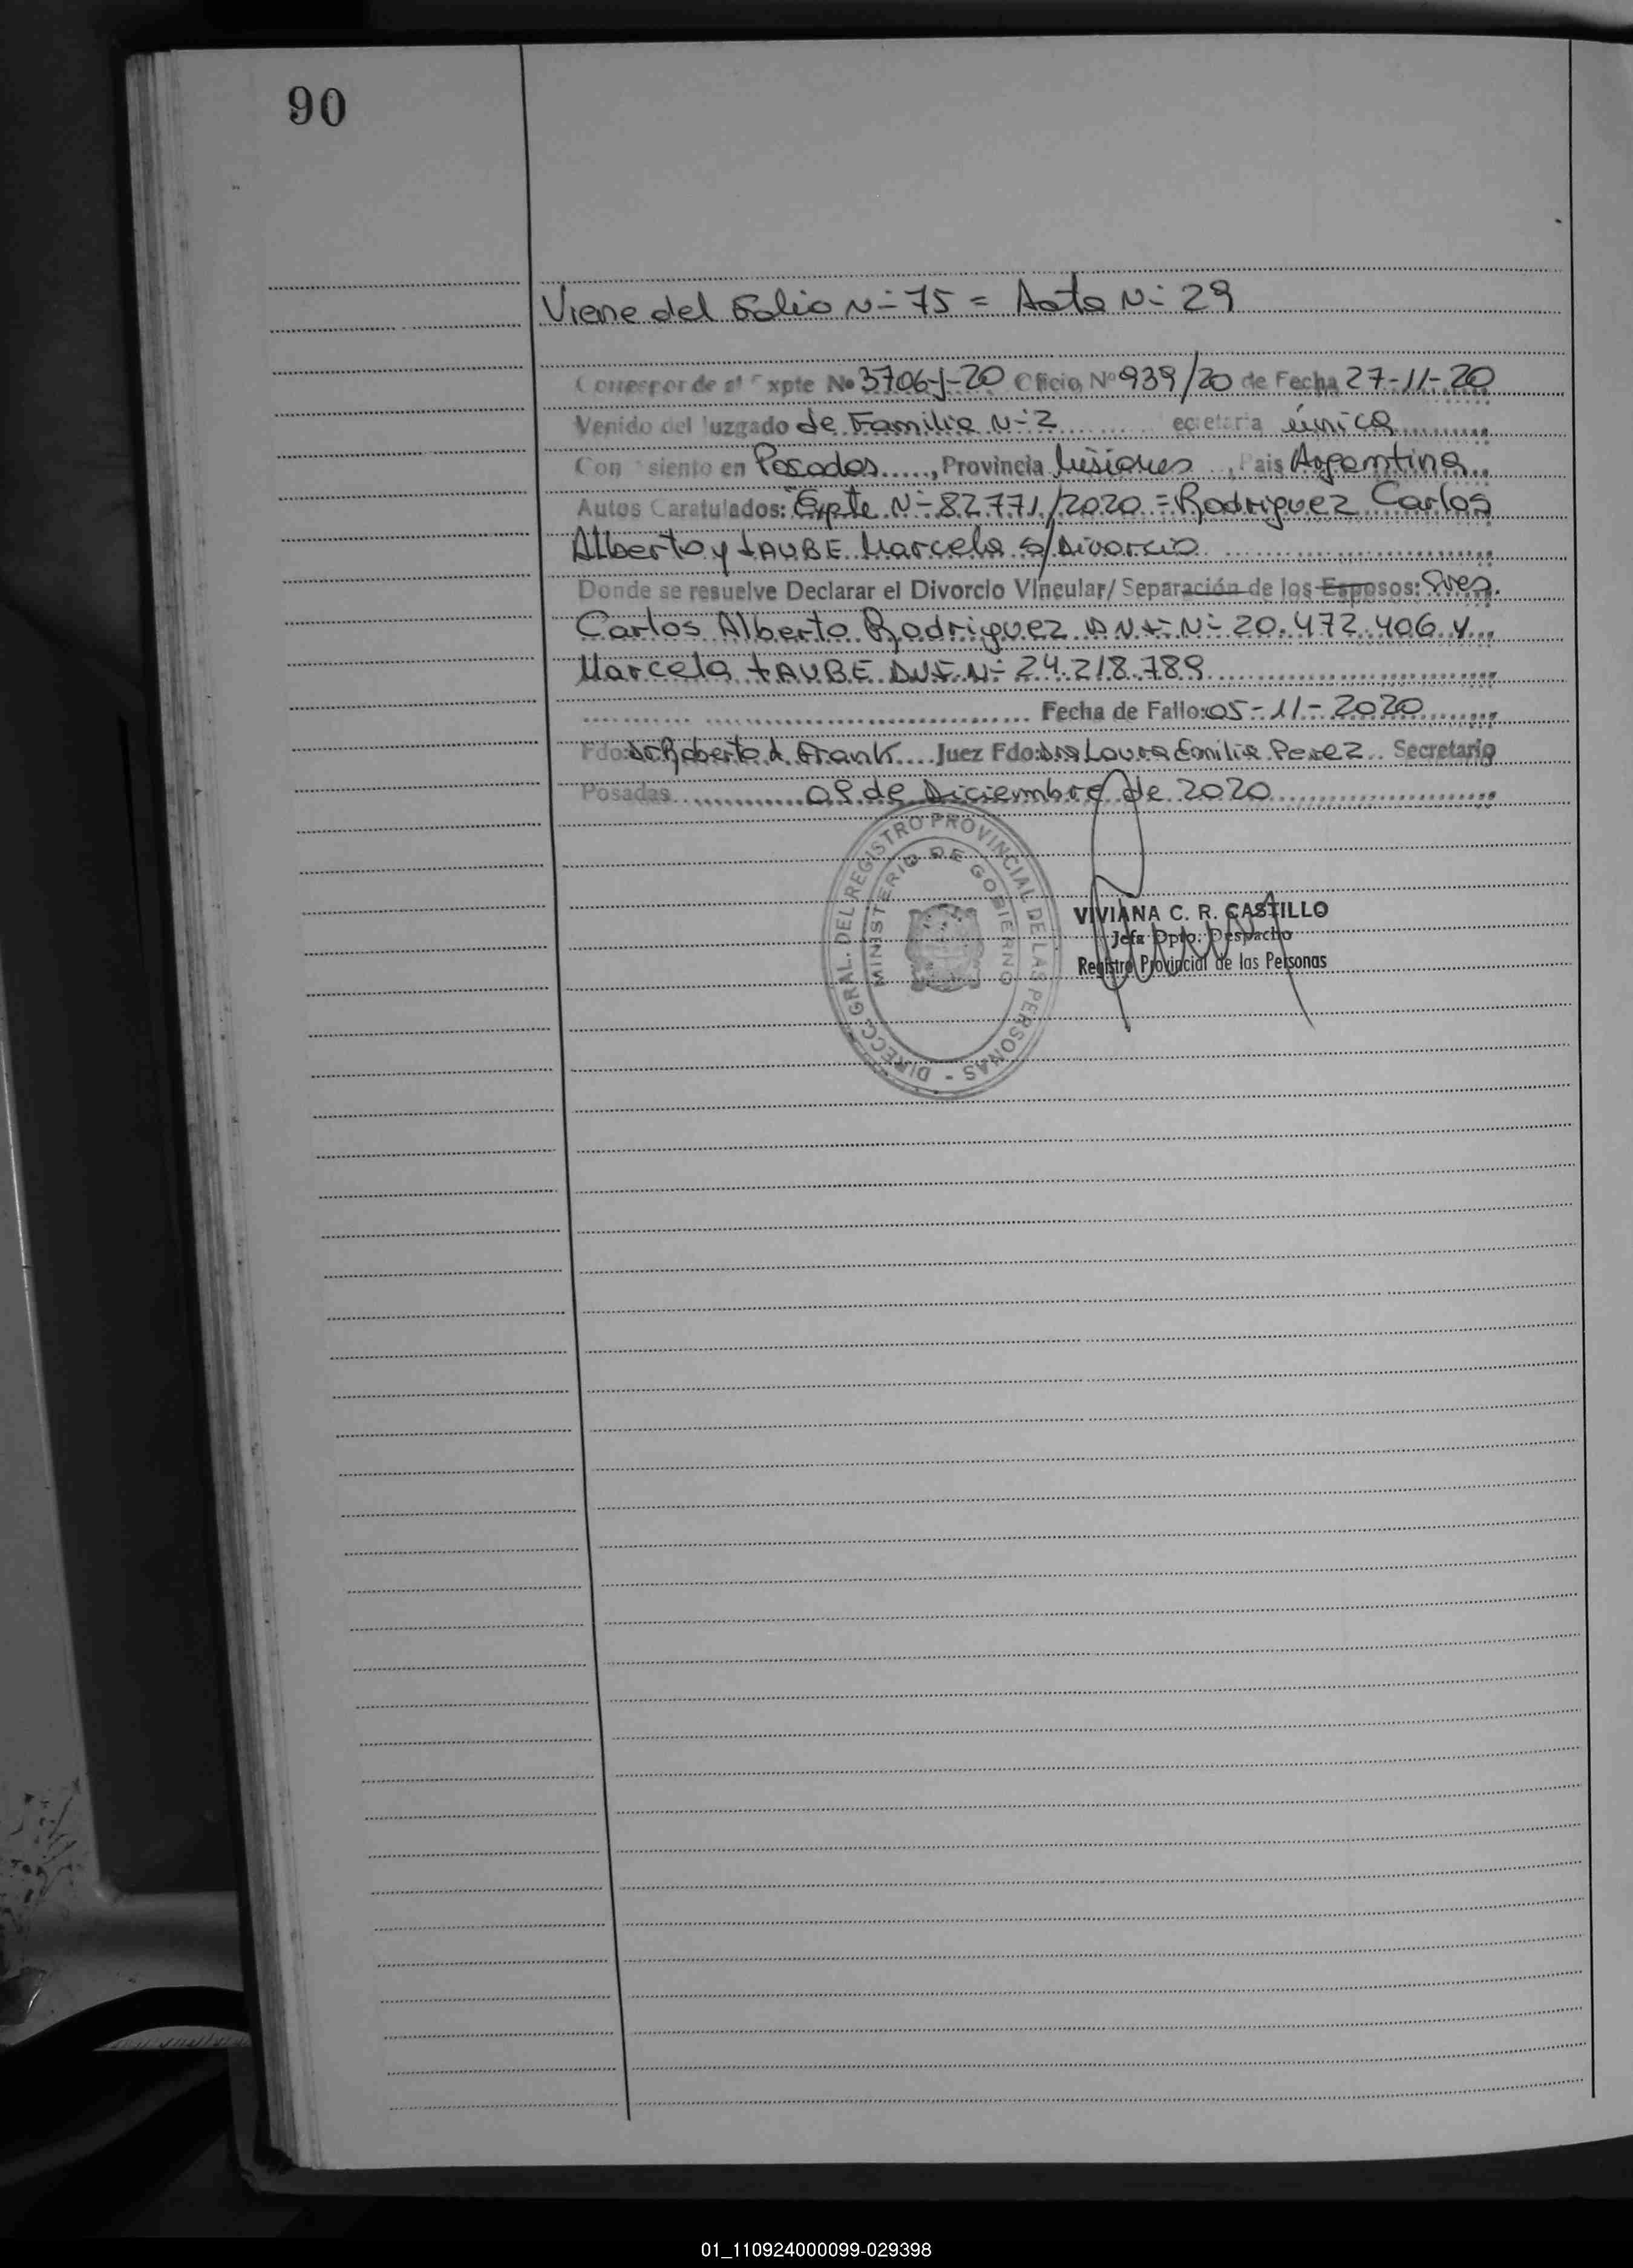 90
Viene del Folio N- 75 = Acta N- 29
Corresponde al Expte No 3706-J-20 Oficio Nº 939/20 de Fecha 27-11-20
Venido del Juzgado de Familia N- 2 ecretaria única
Con siento en Posadas....., Provincia Misiones, Pais Argentina
Autos Caratulados: "Expte N- 82771/2020 = Rodriguez Carlos
Alberto y TAUBE Marcela s/Divorcio
Donde se resuelve Declarar el Divorcio Vincular/ Separación de los Esposos: Sres.
Carlos Alberto Rodriguez DNI- N- 20.472.406 y
Marcela TAUBE DNI. N- 24.218.789
Fecha de Fallo: 05-11-2020
Fdo: Dr Roberto A. Frank.... Juez Fdo: Dra Laura Emilia Perez.. Secretario
Posadas 09 de Diciembre de 2020
DIRECC. GRAL. DEL REGISTRO PROVINCIAL DE LAS PERSONAS -
MINISTERIO DE GOBIERNO
VIVIANA C. R. CASTILLO
Jefa Dpto. Despacho
Registro Provincial de las Personas
01_110924000099-029398